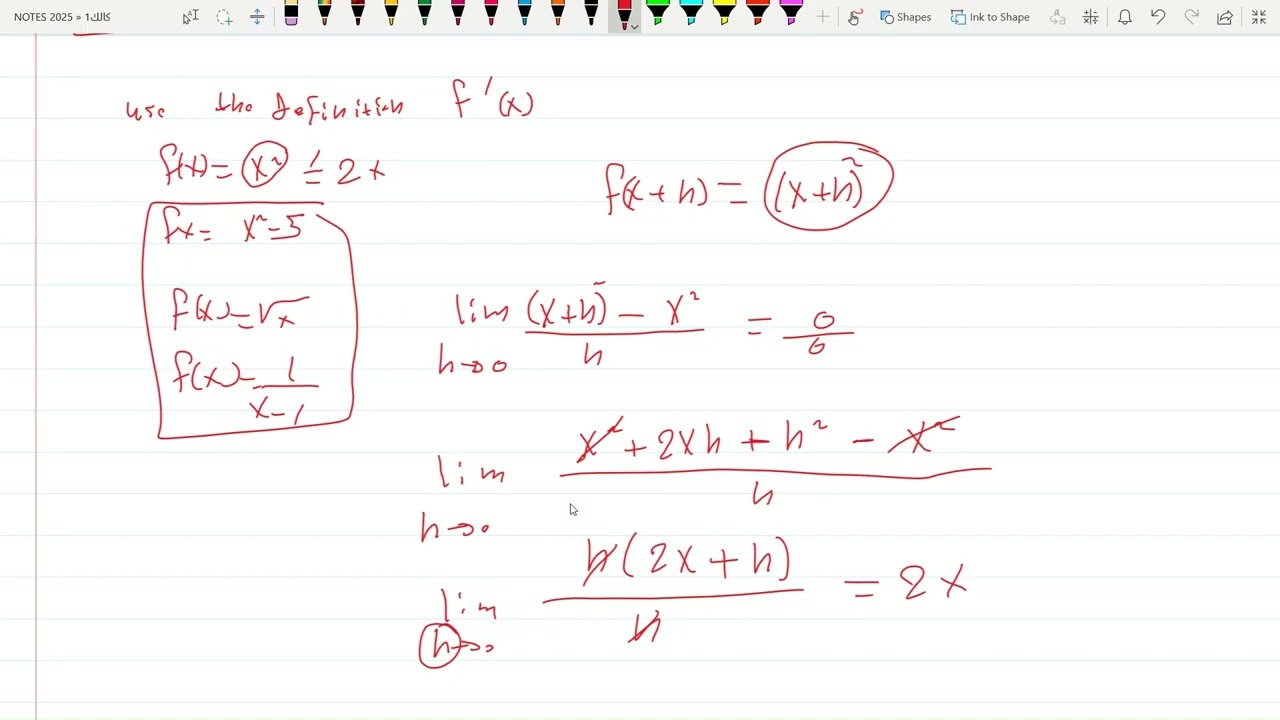 NOTES 2025 » كالك1
Shapes
Ink to Shape
use the definition f'(x)
f(x) = x² ⇒ 2x
f(x+h) = (x+h)²
fx = x²-5
f(x) = √x
f(x) = 1/(x-1)
lim h→0 ((x+h)² - x²)/h = 0/0
lim h→0 (x² + 2xh + h² - x²)/h
lim h→0 h(2x+h)/h = 2x